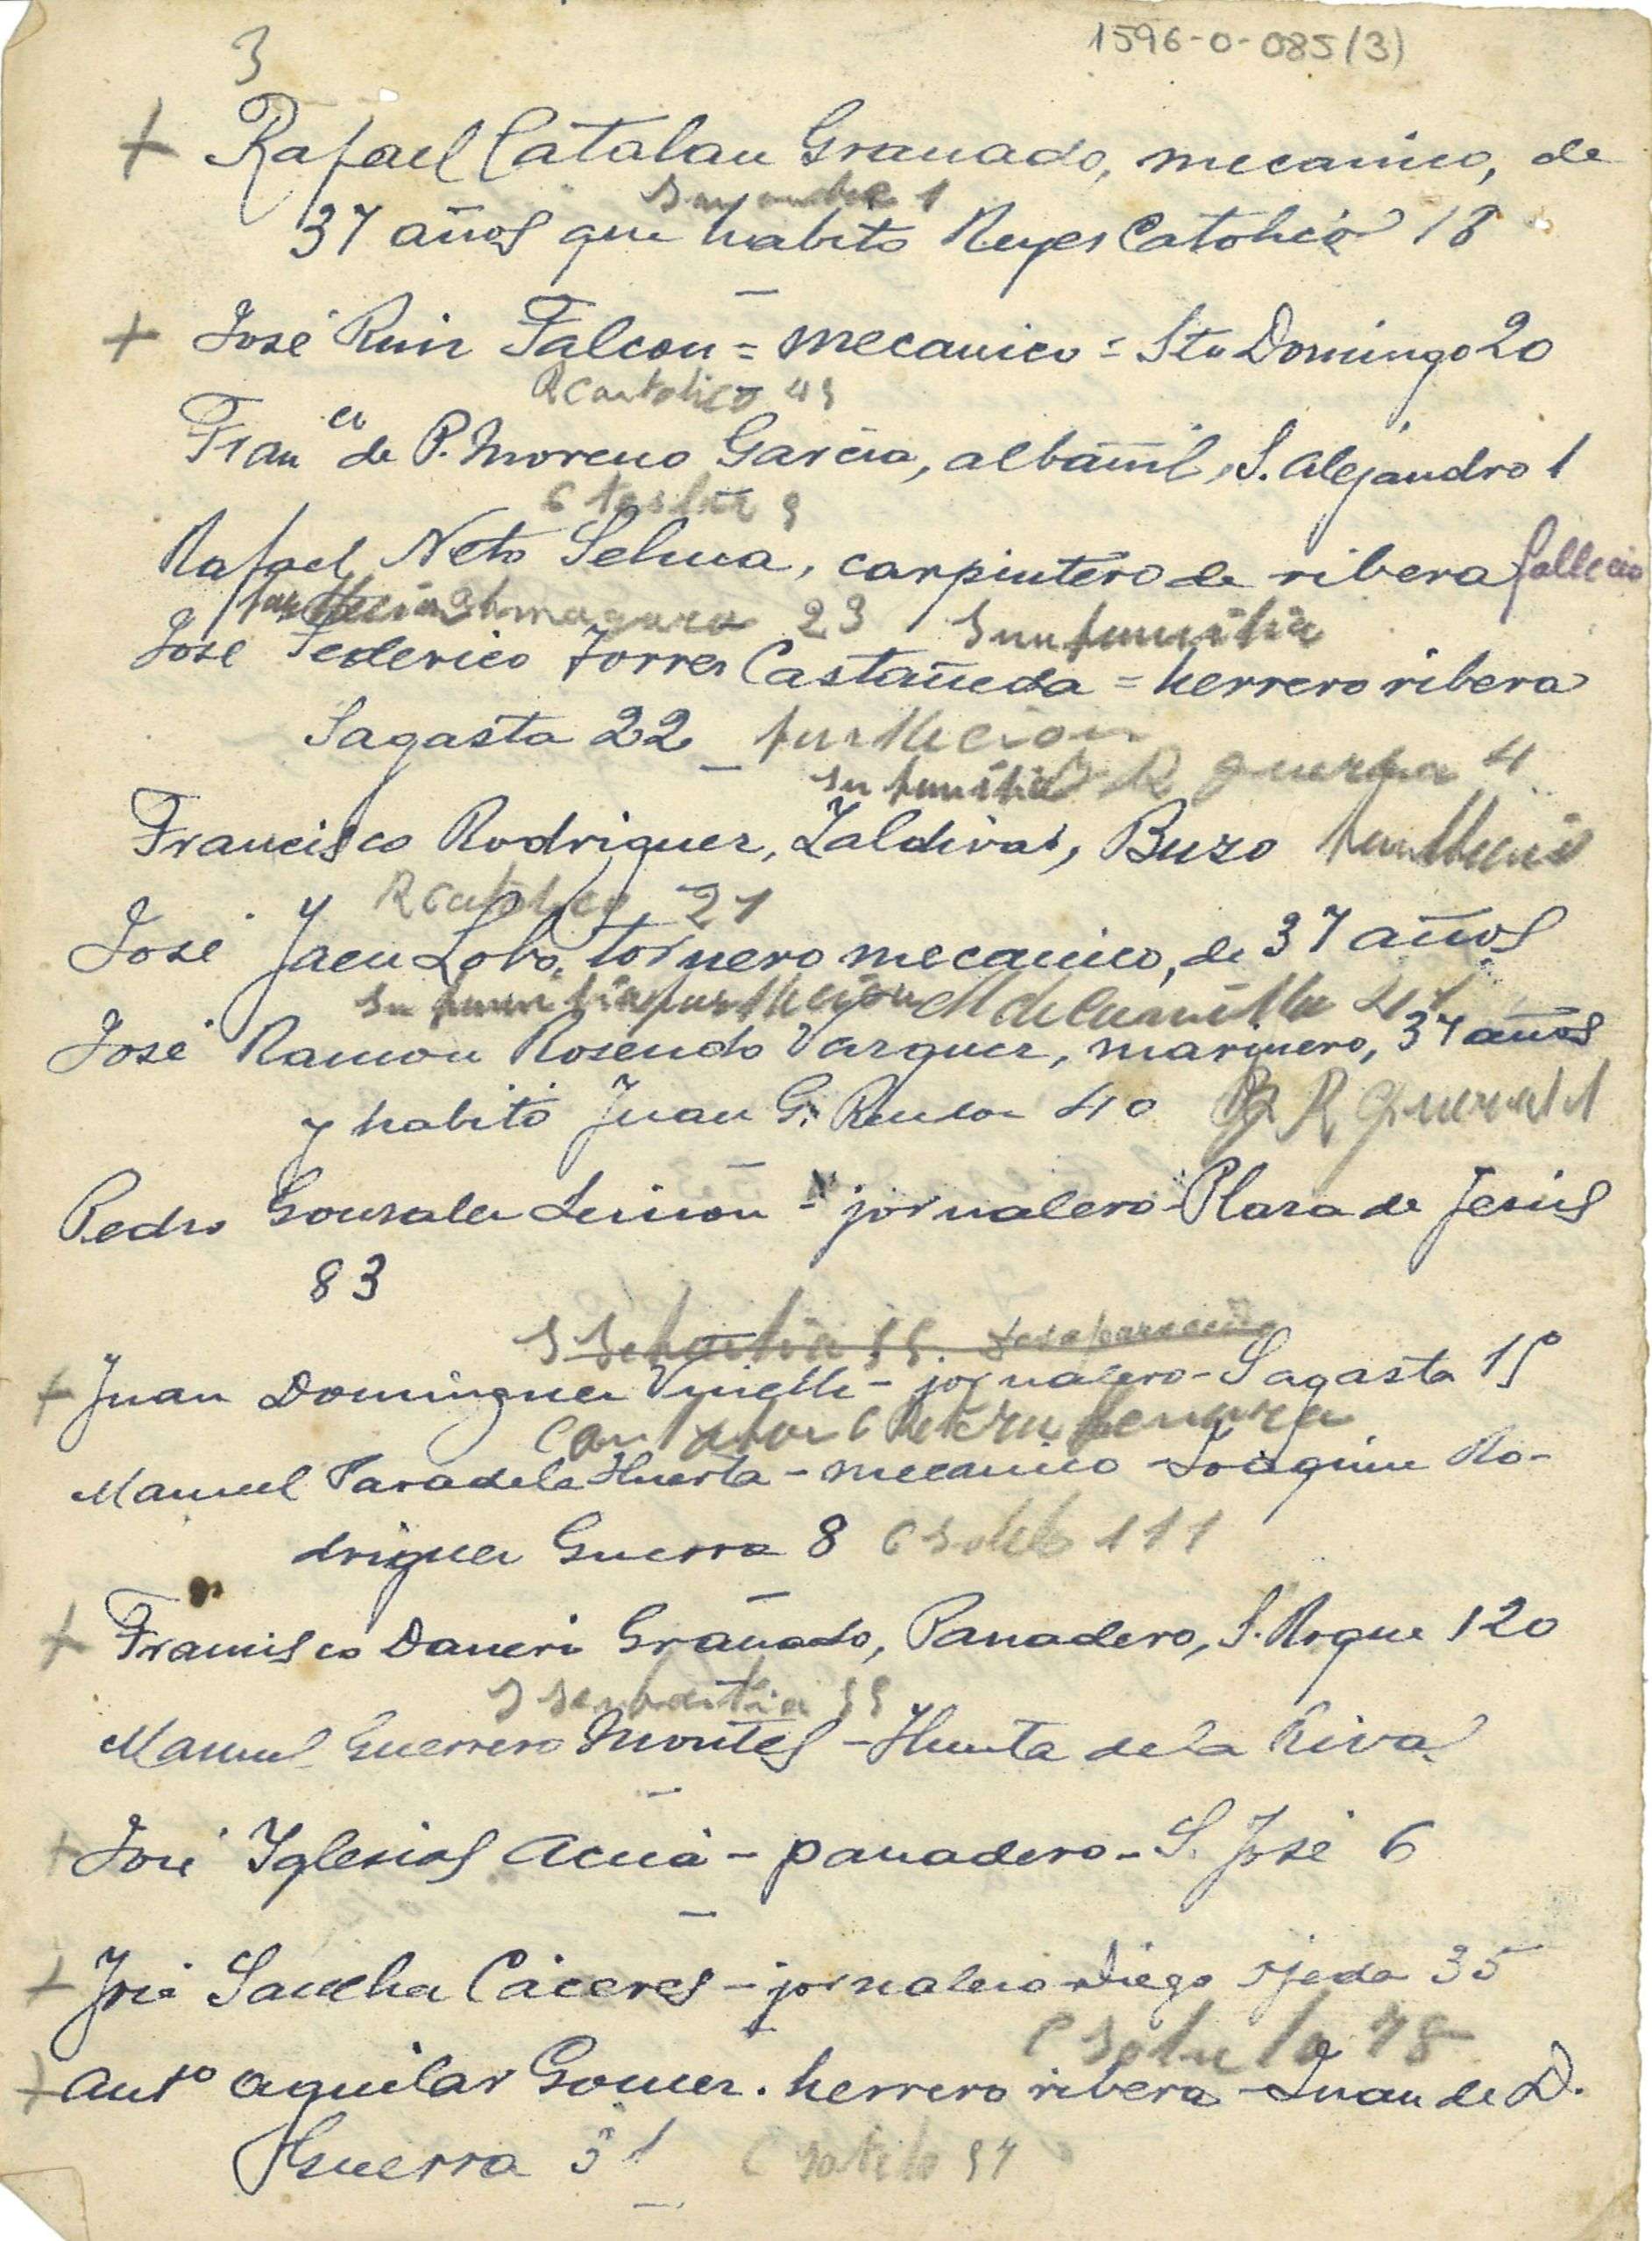 3
1596-0-085(3)
+ Rafael Catalan Granado, mecanico, de
37 años que habito Reyes Catolico 18
+ José Ruiz Falcon = mecanico = Sto Domingo 20
R Cartolico 45
Franco de P. Moreno García, albañil, S. Alejandro 1
Rafael Neto Selma, carpintero de ribera fallecio
23 su familia
José Federico Torres Castañeda = herrero ribera
Sagasta 22
su familia R guerra 4
Francisco Rodriguez, Zaldivar, Buzo
R catolico 21
José Jaen Lobo, tornero mecanico, de 37 años
su familia
José Ramon Rosendo Vazquez, marinero, 37 años
y habitó Juan G. Rendon 40
Pedro Gonzalez Limon - jornalero - Plaza de Jesús
83
desaparecio
+ Juan Dominguez - jornalero - Sagasta 15
Manuel Paradela Huerta - mecanico - Joaquin Ro-
driguez Guerra 8 C solelo 111
+ Francisco Daneri Granado, Panadero, S. Roque 120
Manuel Guerrero Montes - Huerta de la Riva
+ José Iglesias Acuña - panadero - S. José 6
+ José Sanchez Cáceres - jornalero - Diego ojeda 35
C sotelo 78
+ Antº Aguilar Gomez. herrero ribera - Juan de D.
Guerra 31 C sotelo 57